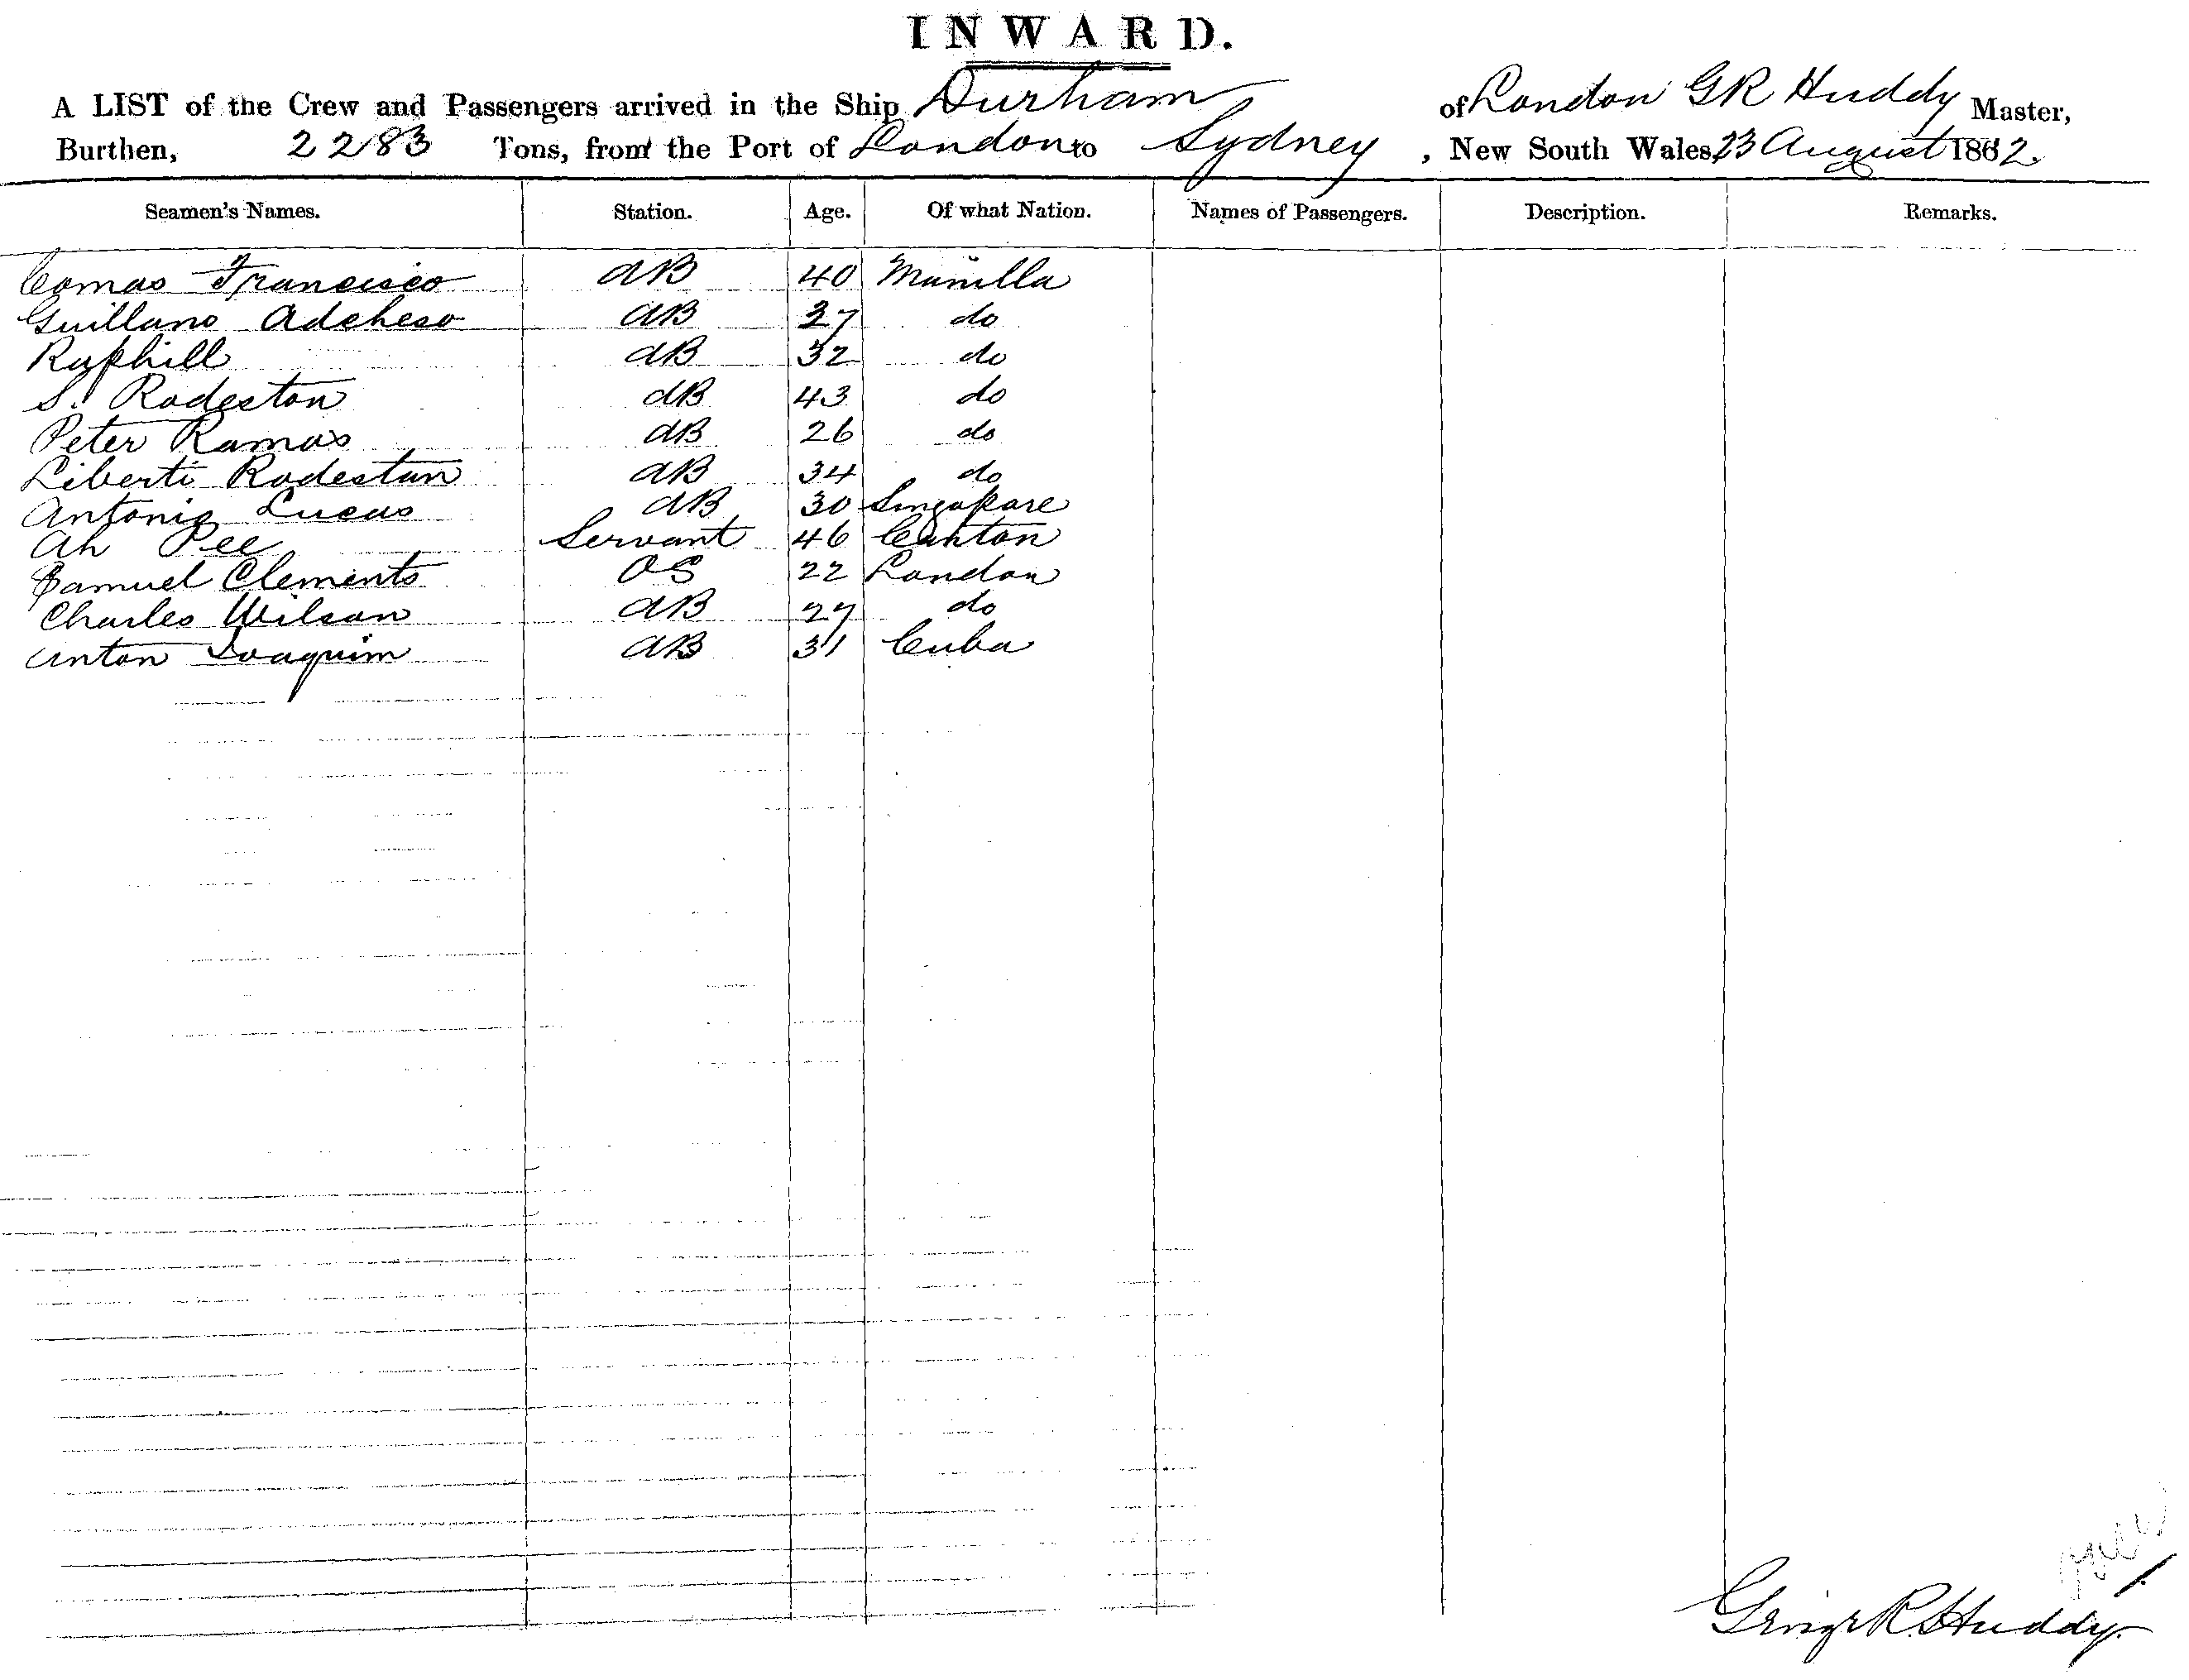 INWARD.
A LIST of the Crew and Passengers arrived in the Ship Durham of London G R Huddy Master,
Burthen, 2283 Tons, from the Port of London to Sydney, New South Wales, 23 August 1882.
Seamen's Names. Station. Age. Of what Nation. Names of Passengers. Description. Remarks.
Comas Francisco AB 40 Manilla
Guillano Adcheso AB 37 do
Raphill AB 32 do
S. Rodeston AB 43 do
Peter Ramos AB 26 do
Liberti Rodestan AB 34 do
Antonio Lucas AB 30 Singapore
Ah Pee Servant 46 Canton
Samuel Clements OS 22 London
Charles Wilson AB 27 do
Anton Joaquim AB 31 Cuba
George R. Huddy